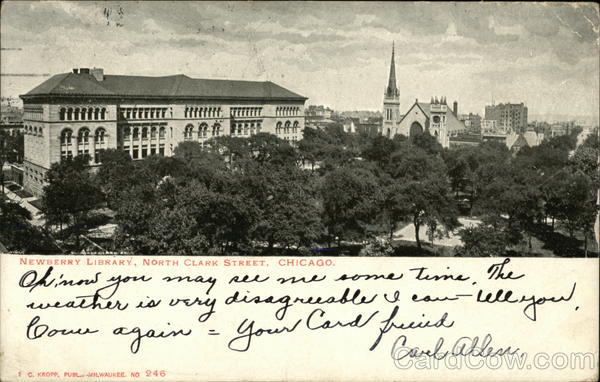 Newberry Library, North Clark Street, Chicago.
Oh' now you may see me some time. The
weather is very disagreeable I can tell you.
Come again = Your Card friend
Carl Allen.
E. C. Kropp, Publ., Milwaukee. No 246
CardCow.com